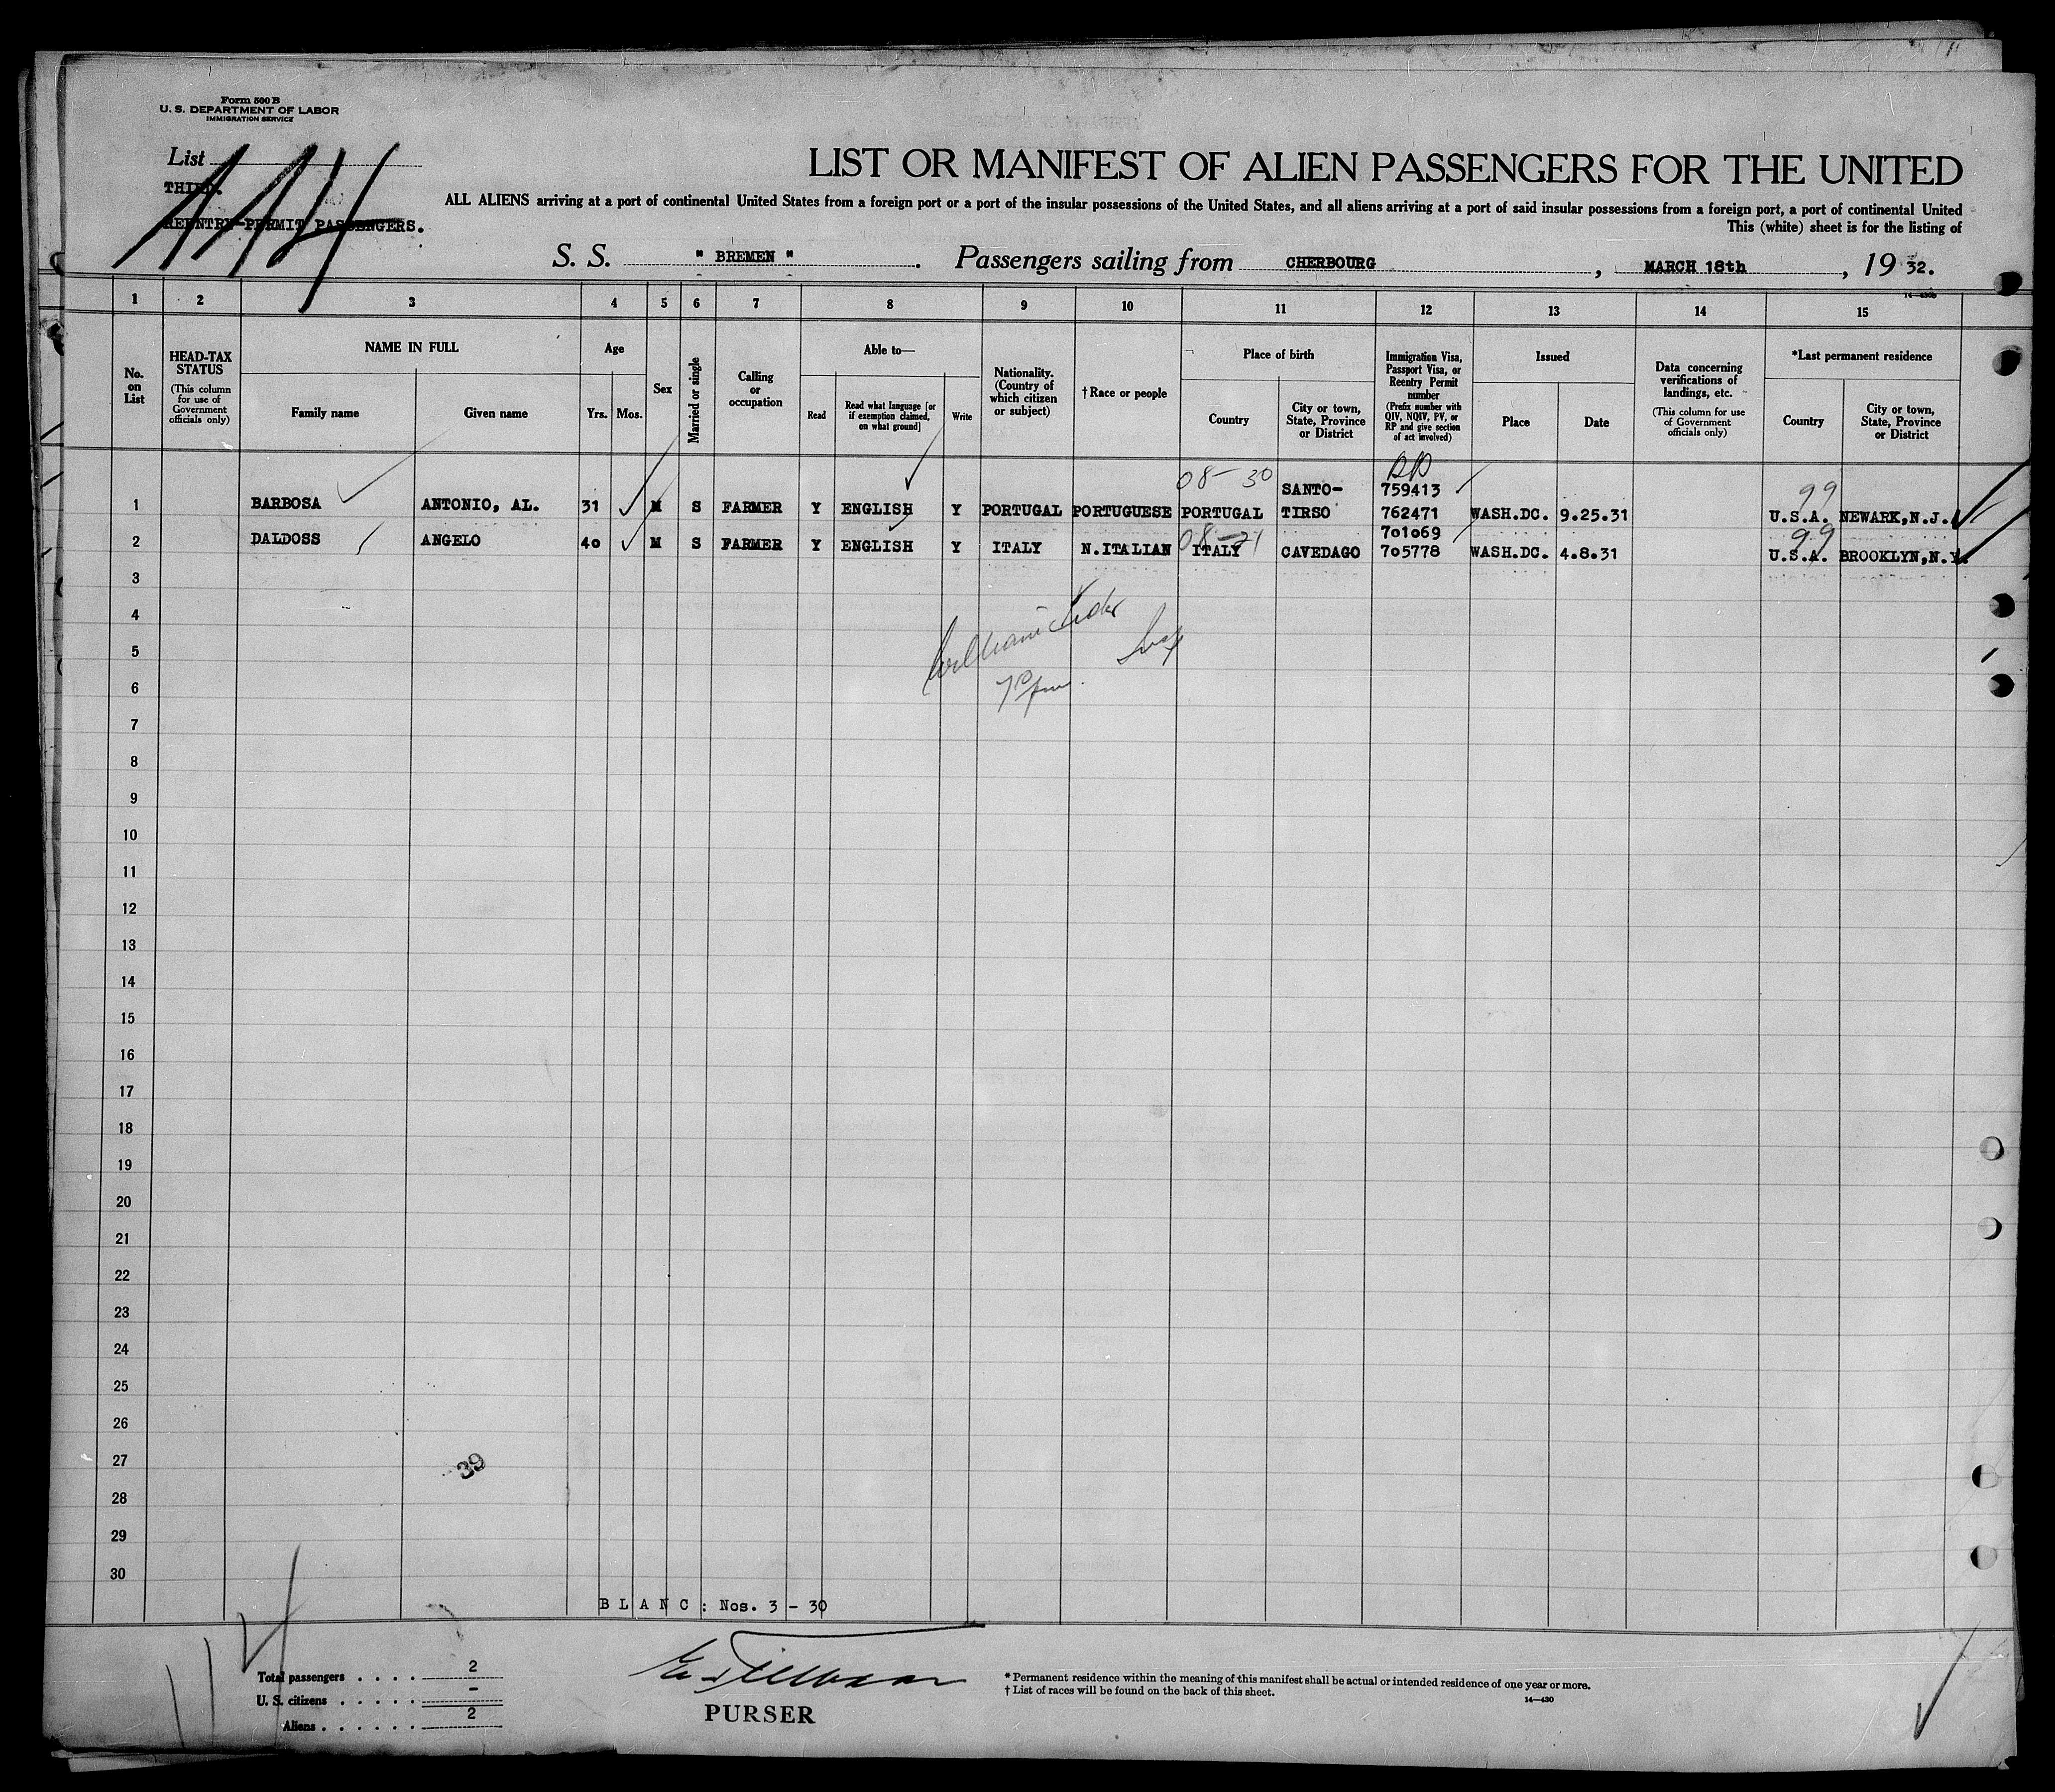 Form 500 B
U. S. DEPARTMENT OF LABOR
IMMIGRATION SERVICE
List
114
THIRD.
REENTRY-PERMIT PASSENGERS.
LIST OR MANIFEST OF ALIEN PASSENGERS FOR THE UNITED
ALL ALIENS arriving at a port of continental United States from a foreign port or a port of the insular possessions of the United States, and all aliens arriving at a port of said insular possessions from a foreign port, a port of continental United
This (white) sheet is for the listing of
S. S. " BREMEN " . Passengers sailing from CHERBOURG , MARCH 18th , 19 32.
1 2 3 4 5 6 7 8 9 10 11 12 13 14 15
No. on List
HEAD-TAX STATUS
(This column for use of Government officials only)
NAME IN FULL
Family name
Given name
Age
Yrs.
Mos.
Sex
Married or single
Calling or occupation
Able to—
Read
Read what language [or if exemption claimed, on what ground]
Write
Nationality. (Country of which citizen or subject)
† Race or people
Place of birth
Country
City or town, State, Province or District
Immigration Visa, Passport Visa, or Reentry Permit number
(Prefix number with QIV, NQIV, PV, or RP and give section of act involved)
Issued
Place
Date
Data concerning verifications of landings, etc.
(This column for use of Government officials only)
*Last permanent residence
Country
City or town, State, Province or District
08-30 SANTO- 759413 99
1 BARBOSA ANTONIO, AL. 31 M S FARMER Y ENGLISH Y PORTUGAL PORTUGUESE PORTUGAL TIRSO 762471 WASH.DC. 9.25.31 U.S.A. NEWARK,N.J.
08-21 701069 99
2 DALDOSS ANGELO 40 M S FARMER Y ENGLISH Y ITALY N.ITALIAN ITALY CAVEDAGO 705778 WASH.DC. 4.8.31 U.S.A. BROOKLYN,N.Y.
3
4
5
6
7
8
9
10
11
12
13
14
15
16
17
18
19
20
21
22
23
24
25
26
27
39
28
29
30
BLANC: Nos. 3 - 30
Total passengers . . . . 2
U. S. citizens . . . . . -
Aliens . . . . . . 2
PURSER
* Permanent residence within the meaning of this manifest shall be actual or intended residence of one year or more.
† List of races will be found on the back of this sheet.
14—430